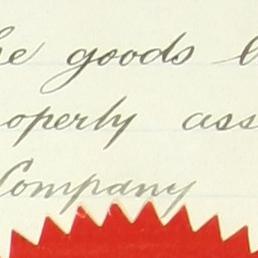 he goods b
roperty ass
Company